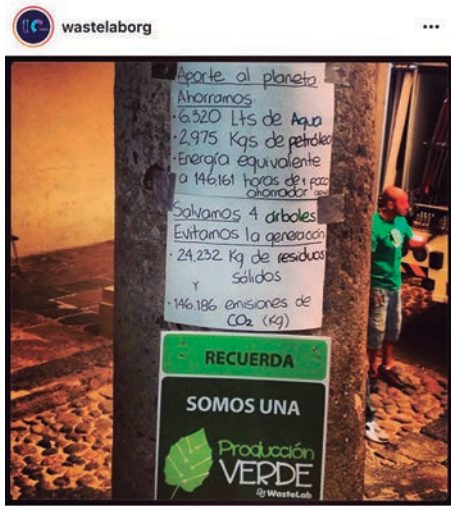 wastelaborg
Aporte al planeta
Ahorramos:
· 6.320 Lts de Agua
· 2,975 Kgs de petróleo
· Energía equivalente
a 146,161 horas de 1 foco
ahorrador
Salvamos 4 árboles
Evitamos la generación
· 24,232 Kg de residuos
sólidos
Y
· 146,186 emisiones de
CO2 (Kg)
RECUERDA
SOMOS UNA
Producción
VERDE
WasteLab